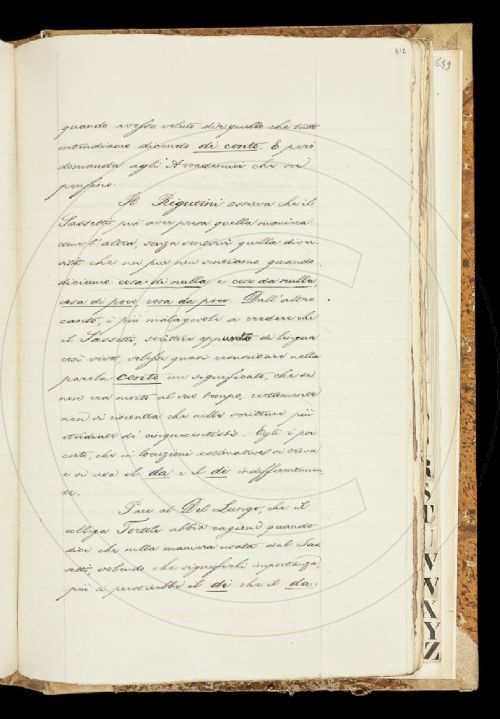 612
689
quando avesse voluto dire quello che tutti
intendiamo dicendo di conto. E però
domanda agli Accademici che ne
pensino.
Il Rigutini osserva che il
Sassetti può aver presa quella maniera
come l'altra, senza sentirvi quella diver-
sità che noi pur sentiamo quando
diciamo cosa di nulla e cosa da nulla
cosa di poco, cosa da poco. Dall'altro
canto, è più malagevole a credere che
il Sassetti, scrittore appunto di lingua
così viva, volesse quasi resuscitare nella
parola conto un significato, che se
non era morto al suo tempo, certamente
non si riscontra che nelle scritture più
studiate di cinquecentisti. Egli è poi
certo, che in locuzioni estimative si trova
e si usa il da e il di indifferentemen-
te.
Pare al Del Lungo, che il
collega Tortoli abbia ragione quando
dice che nella maniera usata dal Sas-
setti, volendo che significhi importanza,
più si presterebbe il di che il da.
R
S
T
U
V
W
X
Y
Z